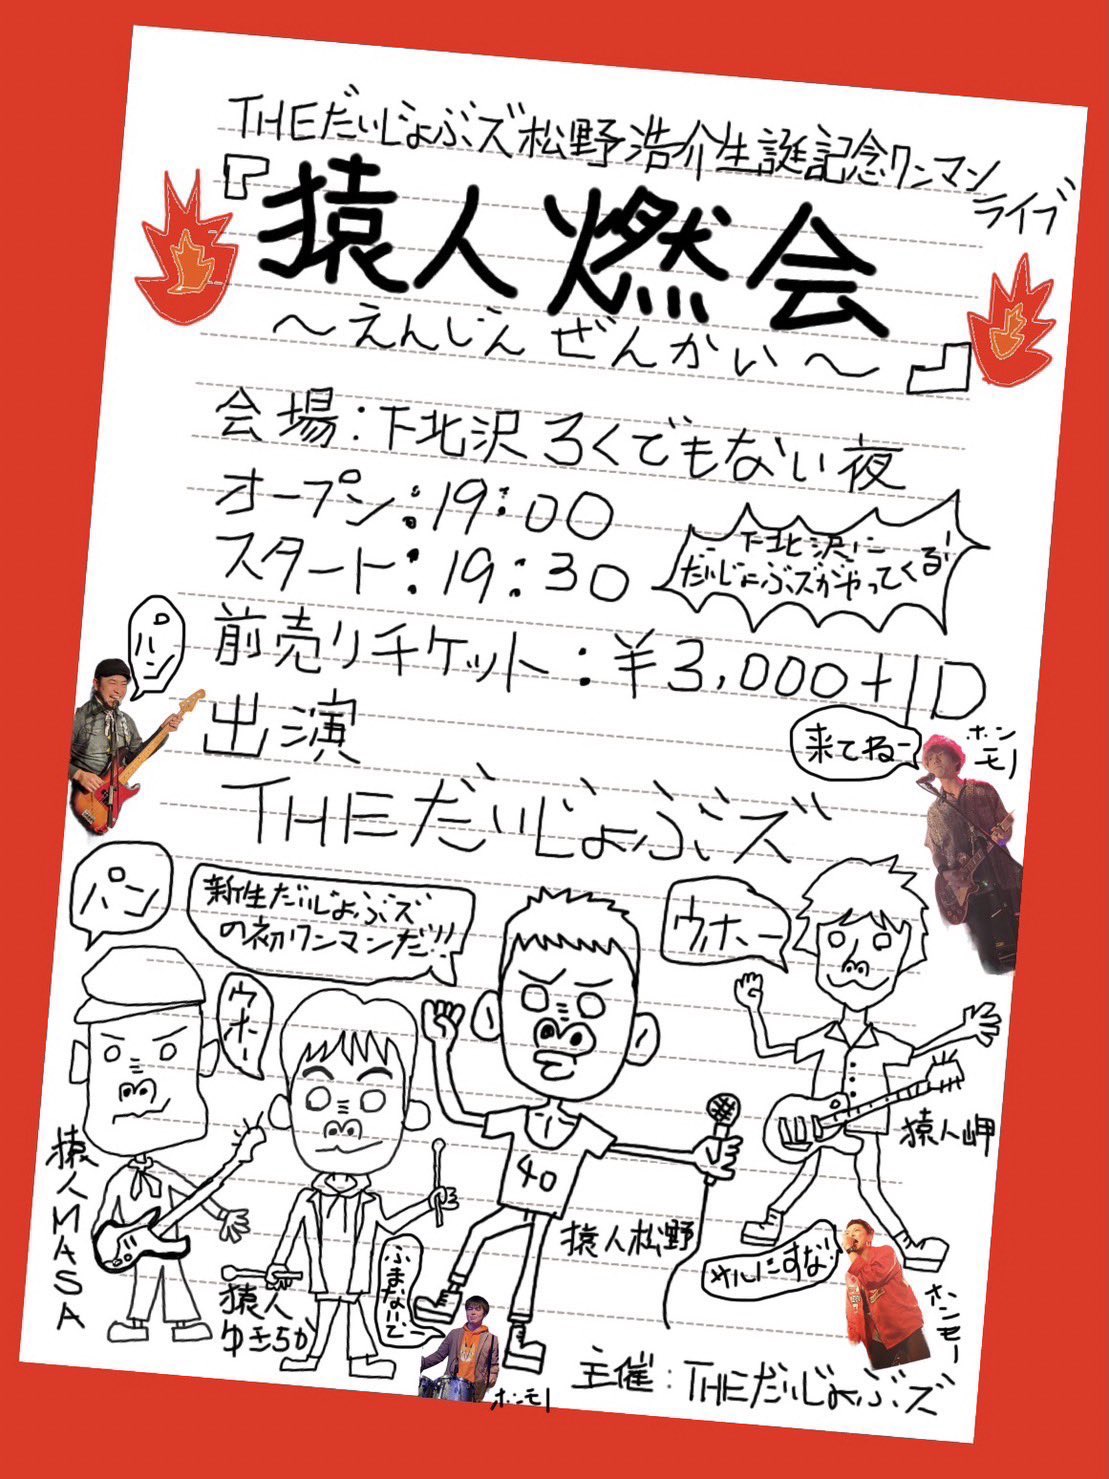 THEだいじょぶズ松野浩介生誕記念ワンマンライブ
『猿人燃会
〜えんじんぜんかい〜』
会場：下北沢ろくでもない夜
オープン：19：00
スタート：19：30
下北沢に
だいじょぶズがやってくる!
前売りチケット：¥3,000+1D
パン
出演
来てねー
ホンモノ
THEだいじょぶズ
パン
新生だいじょぶズ
の初ワンマンだ!!!
ウホー
ウホー
40
猿人MASA
猿人
ゆきちか
猿人松野
猿人岬
ふまないでー
ホンモノ
サルにすな
ホンモノ
主催：THEだいじょぶズ